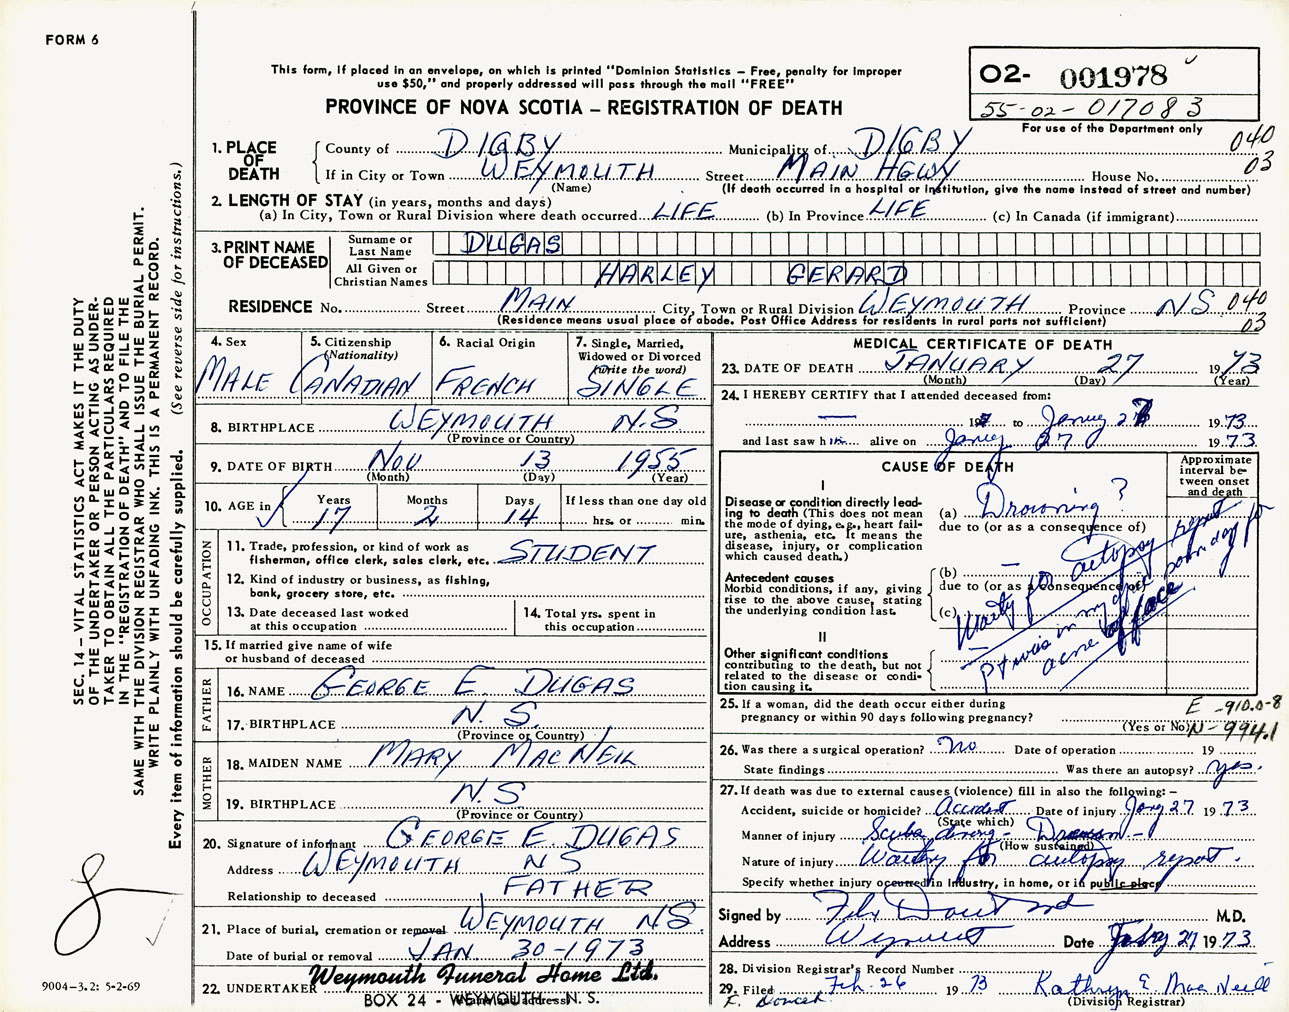 FORM 6
This form, if placed in an envelope, on which is printed "Dominion Statistics – Free, penalty for improper
use $50," and properly addressed will pass through the mail "FREE"
PROVINCE OF NOVA SCOTIA – REGISTRATION OF DEATH
02- 001978
55-02-017083
For use of the Department only
040
03
1. PLACE OF DEATH
County of DIGBY Municipality of DIGBY
If in City or Town WEYMOUTH Street MAIN HGWY House No.
(Name) (If death occurred in a hospital or institution, give the name instead of street and number)
2. LENGTH OF STAY (in years, months and days)
(a) In City, Town or Rural Division where death occurred LIFE (b) In Province LIFE (c) In Canada (if immigrant)
3. PRINT NAME OF DECEASED
Surname or Last Name DUGAS
All Given or Christian Names HARLEY GERARD
RESIDENCE No. Street MAIN City, Town or Rural Division WEYMOUTH Province NS 040
03
(Residence means usual place of abode. Post Office Address for residents in rural parts not sufficient)
4. Sex
MALE
5. Citizenship
(Nationality)
CANADIAN
6. Racial Origin
FRENCH
7. Single, Married,
Widowed or Divorced
(write the word)
SINGLE
8. BIRTHPLACE WEYMOUTH N.S
(Province or Country)
9. DATE OF BIRTH NOV 13 1955
(Month) (Day) (Year)
10. AGE in Years Months Days If less than one day old
17 2 14 hrs. or min.
OCCUPATION
11. Trade, profession, or kind of work as
fisherman, office clerk, sales clerk, etc. STUDENT
12. Kind of industry or business, as fishing,
bank, grocery store, etc.
13. Date deceased last worked
at this occupation
14. Total yrs. spent in
this occupation
15. If married give name of wife
or husband of deceased
FATHER
16. NAME GEORGE E. DUGAS
17. BIRTHPLACE N.S.
(Province or Country)
MOTHER
18. MAIDEN NAME MARY MACNEIL
19. BIRTHPLACE N.S
(Province or Country)
20. Signature of informant GEORGE E. DUGAS
Address WEYMOUTH N S
Relationship to deceased FATHER
21. Place of burial, cremation or removal WEYMOUTH NS
Date of burial or removal JAN 30-1973
22. UNDERTAKER Weymouth Funeral Home Ltd.
BOX 24 - WEYMOUTH N. S.
MEDICAL CERTIFICATE OF DEATH
23. DATE OF DEATH JANUARY 27 1973
(Month) (Day) (Year)
24. I HEREBY CERTIFY that I attended deceased from:
— 19 to 27 1973
and last saw him alive on 27 1973
CAUSE OF DEATH
Approximate
interval be-
tween onset
and death
I
Disease or condition directly lead-
ing to death (This does not mean
the mode of dying, e.g., heart fail-
ure, asthenia, etc. It means the
disease, injury, or complication
which caused death.)
(a) Drowning?
due to (or as a consequence of)
Antecedent causes
Morbid conditions, if any, giving
rise to the above cause, stating
the underlying condition last.
(b) —
due to (or as a consequence of)
(c)
Waiting for autopsy report
Pt was in my office same day for
acne of face
II
Other significant conditions
contributing to the death, but not
related to the disease or condi-
tion causing it.
25. If a woman, did the death occur either during
pregnancy or within 90 days following pregnancy?
(Yes or No)
E -910.0-8
N-994.1
26. Was there a surgical operation? No Date of operation 19
State findings Was there an autopsy? Yes.
27. If death was due to external causes (violence) fill in also the following: –
Accident, suicide or homicide? Accident Date of injury 27 1973
(State which)
Manner of injury Scuba diving -
(How sustained)
Nature of injury Waiting for autopsy report.
Specify whether injury occurred in industry, in home, or in public place
Signed by M.D.
Address Weymouth Date 27 1973
28. Division Registrar's Record Number
29. Filed Feb. 26 1973 Kathryn E. MacNeill
(Division Registrar)
SEC. 14 – VITAL STATISTICS ACT MAKES IT THE DUTY
OF THE UNDERTAKER OR PERSON ACTING AS UNDER-
TAKER TO OBTAIN ALL THE PARTICULARS REQUIRED
IN THE "REGISTRATION OF DEATH" AND TO FILE THE
SAME WITH THE DIVISION REGISTRAR WHO SHALL ISSUE THE BURIAL PERMIT.
WRITE PLAINLY WITH UNFADING INK. THIS IS A PERMANENT RECORD.
Every item of information should be carefully supplied. (See reverse side for instructions.)
9004-3.2: 5-2-69